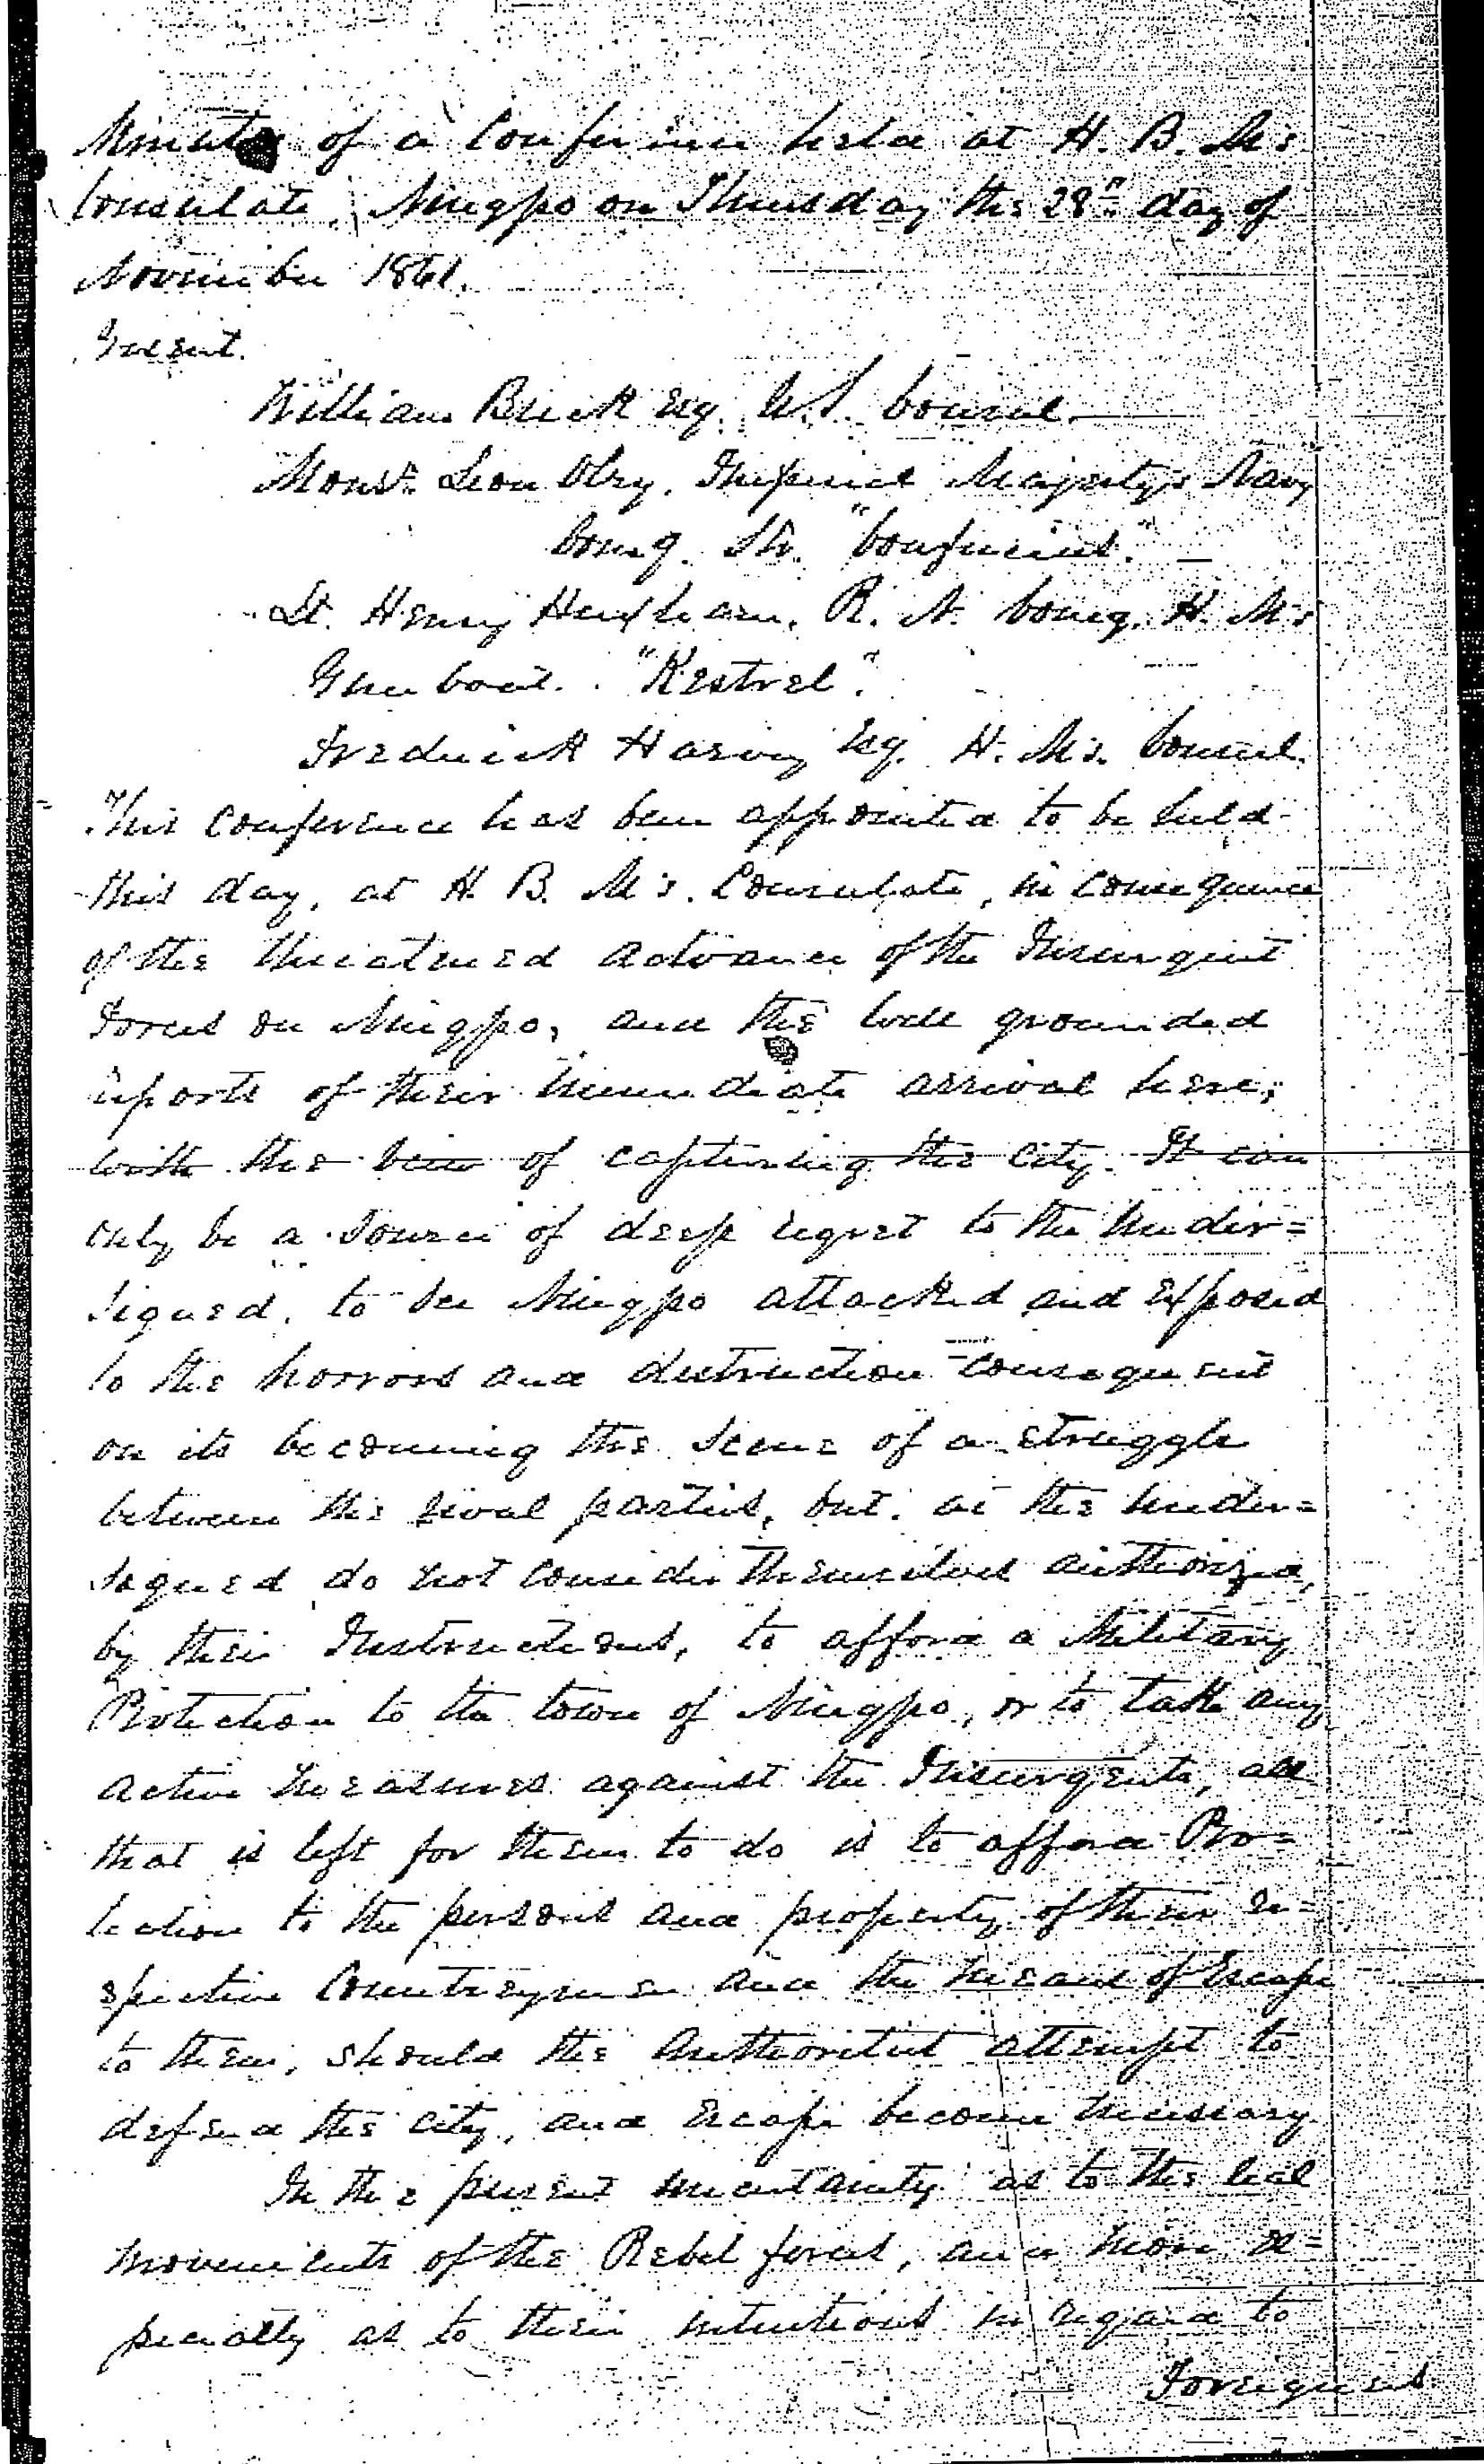 Minutes of a Conference held at H. B. M's
Consulate, Ningpo on Thursday the 28th day of
November 1861.
Present.
William Breck Esq. U.S. Consul.
Monsr. Leon Obry, Imperial Majesty's Navy
Comg. Str. "Confucius."
Lt. Henry Huxham, R. N. Comg. H. M's
Gun boat. "Kestrel".
Frederick Harvey Esq. H. M's. Consul.
This Conference has been appointed to be held
this day, at H. B. M's. Consulate, in consequence
of the threatened advance of the Insurgent
forces on Ningpo, and the well grounded
reports of their immediate arrival here,
with the view of capturing the city. It can
only be a source of deep regret to the Under=
signed, to see Ningpo attacked and exposed
to the horrors and destruction consequent
on its becoming the scene of a struggle
between the rival parties, but, as the Under=
signed do not consider themselves authorized,
by their Instructions, to afford a Military
Protection to the town of Ningpo, or to take any
active measures against the Insurgents, all
that is left for them to do is to afford Pro=
tection to the persons and property of their re=
spective Countrymen and the means of Escape
to them, should the Authorities attempt to
defend the city, and Escape become necessary.
In the present uncertainty as to the real
movements of the Rebel forces, and more es=
pecially as to their intentions in regard to
Foreigners